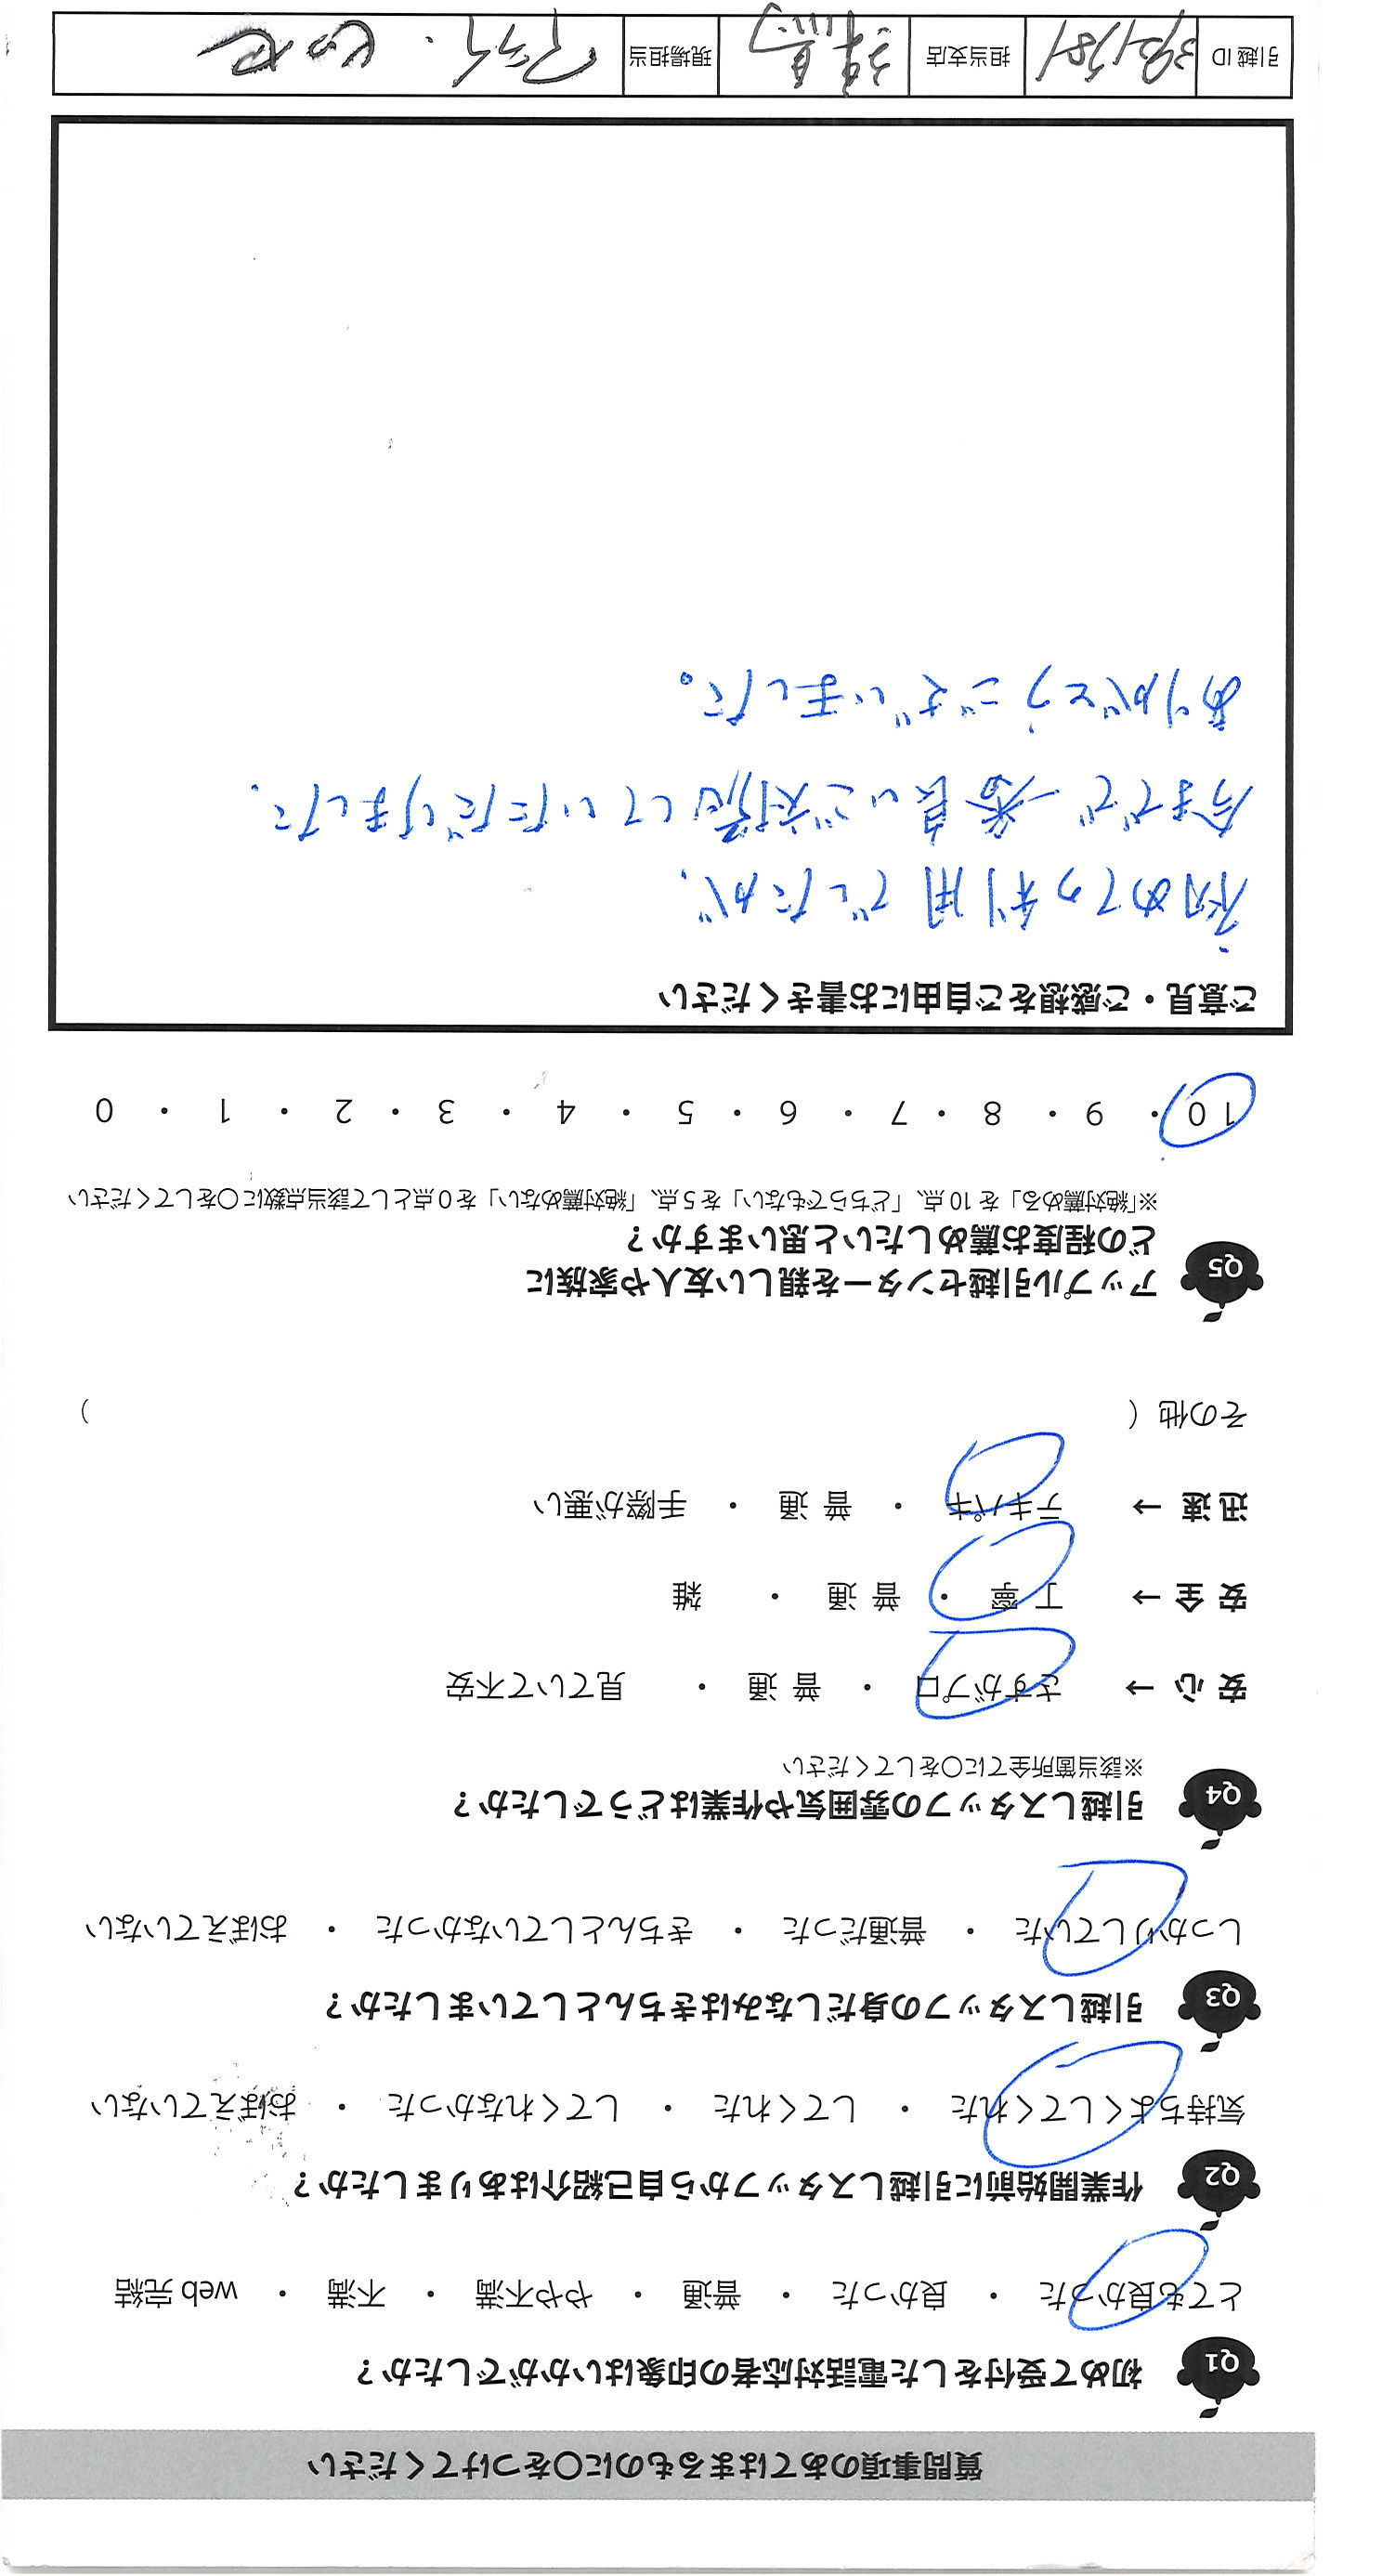 質問事項のあてはまるものに○をつけてください
Q1 初めて受付をした電話対応者の印象はいかがでしたか？
とても良かった ・ 良かった ・ 普通 ・ やや不満 ・ 不満 ・ web 完結
Q2 作業開始前に引越しスタッフから自己紹介はありましたか？
気持ちよくしてくれた ・ してくれた ・ してくれなかった ・ おぼえていない
Q3 引越しスタッフの身だしなみはきちんとしていましたか？
しっかりしていた ・ 普通だった ・ きちんとしていなかった ・ おぼえていない
Q4 引越しスタッフの雰囲気や作業はどうでしたか？
※該当箇所全てに○をしてください
安 心 → さすがプロ ・ 普 通 ・ 見ていて不安
安 全 → 丁 寧 ・ 普 通 ・ 雑
迅 速 → テキパキ ・ 普 通 ・ 手際が悪い
その他（ ）
Q5 アップル引越センターを親しい友人や家族に
どの程度お薦めしたいと思いますか？
※「絶対薦める」を 10 点、「どちらでもない」を 5 点、「絶対薦めない」を 0 点として該当点数に○をしてください
10 ・ 9 ・ 8 ・ 7 ・ 6 ・ 5 ・ 4 ・ 3 ・ 2 ・ 1 ・ 0
ご意見・ご感想をご自由にお書きください
初めての利用でしたが、
今まで一番良いご対応していただけました、
ありがとうございました。
引越 ID 担当支店 練馬 現場担当